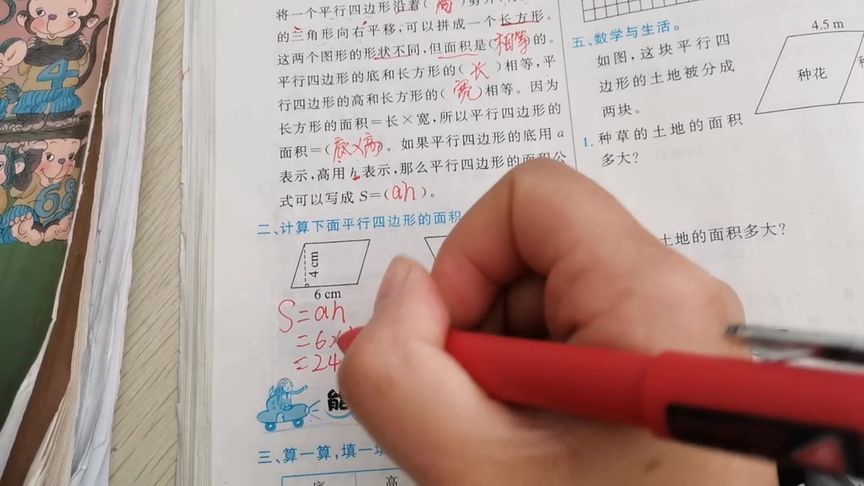 将一个平行四边形沿着(高)剪
的三角形向右平移,可以拼成一个长方形。
这两个图形的形状不同,但面积是(相等)的。
平行四边形的底和长方形的(长)相等,平
行四边形的高和长方形的(宽)相等。因为
长方形的面积=长×宽,所以平行四边形的
面积=(底×高)。如果平行四边形的底用a
表示,高用h表示,那么平行四边形的面积公
式可以写成S=(ah)。
二、计算下面平行四边形的面积
4 cm
6 cm
S=ah
=6×
=24
能
三、算一算,填一填
底 高
五、数学与生活。
如图,这块平行四
边形的土地被分成
两块。
4.5 m
种花
种
1.种草的土地的面积
多大?
土地的面积多大?